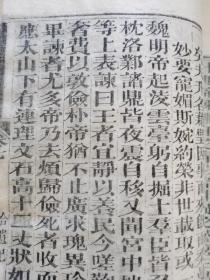 妙要寵媚斯婉約榮非世載取或
魏明帝起凌雲臺躬自掘土羣臣皆
枕洛鄴諸鼎皆夜震自移又聞宮中
等上表諫曰王者宜靜以養民今嗟
奢費以敦儉朴帝猶不止廣求瑰異珍
畢諫者尤多帝乃去煩歸儉死者收而
應太山下有連理文石高十二丈狀如
拾遺